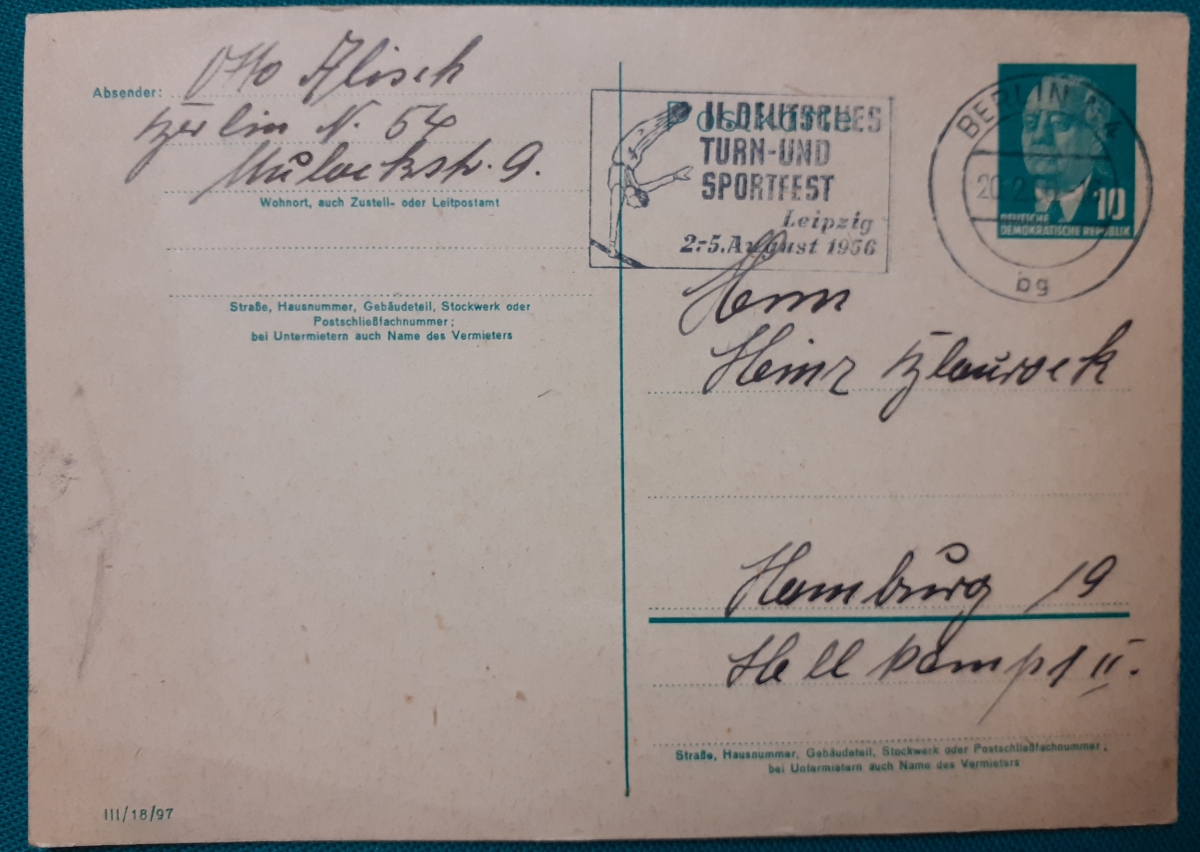 Absender: Otto
Berlin N. 54
Mulackstr. 9.
Wohnort, auch Zustell- oder Leitpostamt
Straße, Hausnummer, Gebäudeteil, Stockwerk oder
Postschließfachnummer;
bei Untermietern auch Name des Vermieters
III/18/97
Postkarte
II. DEUTSCHES
TURN-UND
SPORTFEST
Leipzig
2.-5. August 1956
BERLIN N 4
bg
10
DEUTSCHE
DEMOKRATISCHE REPUBLIK
Herrn
Heinz
Hamburg 19
Straße, Hausnummer, Gebäudeteil, Stockwerk oder Postschließfachnummer;
bei Untermietern auch Name des Vermieters